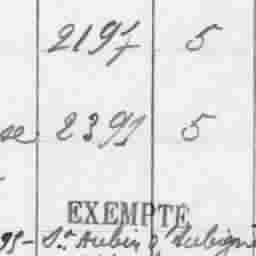 2197 5
se 2391 5
EXEMPTÉ
95- St Aubin d'Aubigné